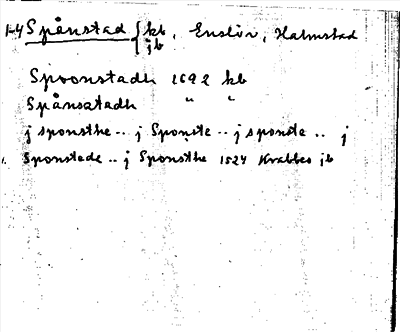 1-4 Spånstad { kb, Enslöv, Halmstad
jb
Spoonstadh 1692 kb
Spånsatadh " "
j sponsthe .. j Sponste .. j sponste .. j
Sponstede .. j Sponsthe 1524 Krabbes jb